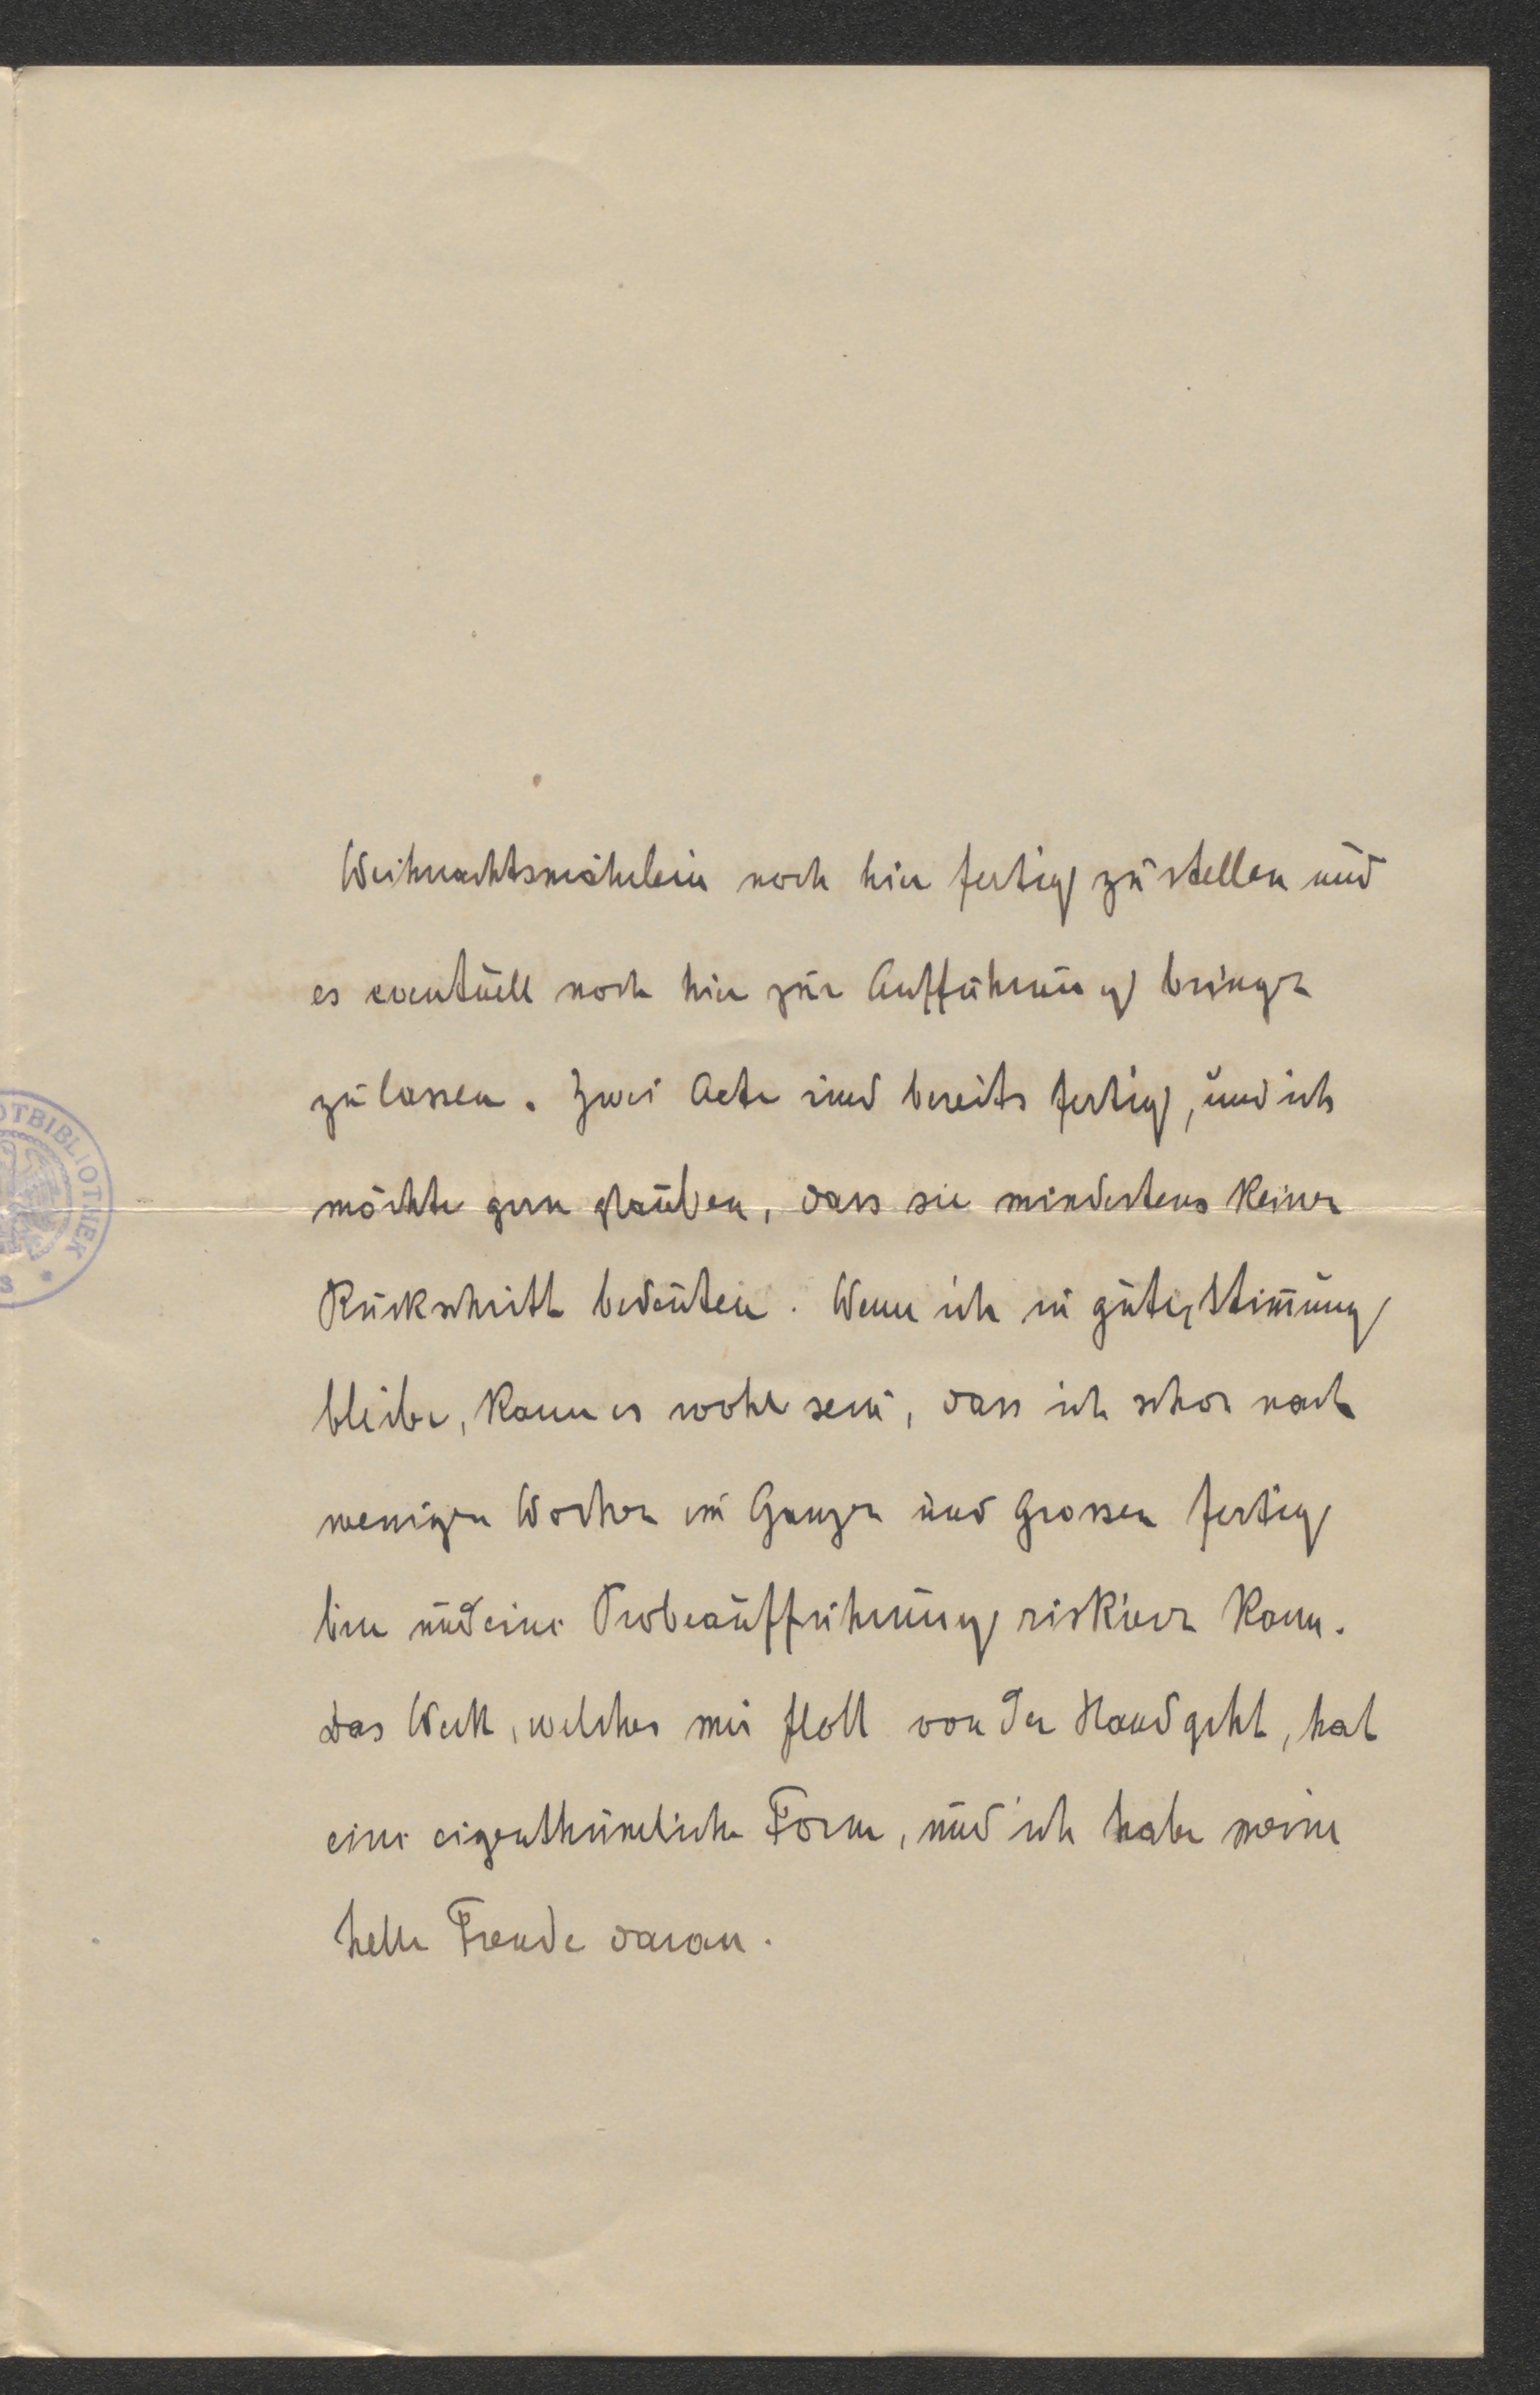 Weihnachtsmärlein noch hier fertig zu stellen und
es eventuell noch hier zur Aufführung bringen
zu lassen. Zwei Acte sind bereits fertig, und ich
möchte gern glauben, dass sie mindestens keinen
Rückschritt bedeuten. Wenn ich in guter Stimmung
bleibe, kann es wohl sein, dass ich schon nach
wenigen Wochen im Ganzen und Grossen fertig
bin und eine Probeaufführung riskieren kann.
Das Werk, welches mir flott von der Hand geht, hat
eine eigenthümliche Form, und ich habe meine
helle Freude daran.
OTBIBLIOTHEK